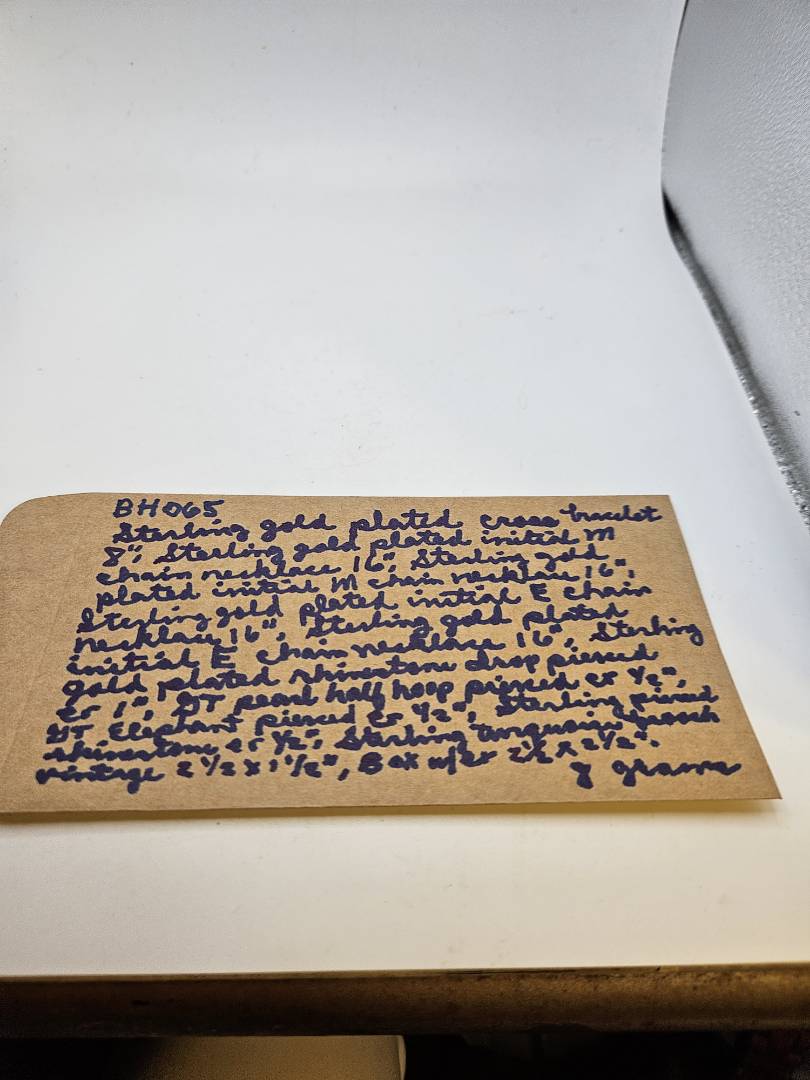 BH065
Sterling gold plated cross bracelet
8", Sterling gold plated initial M
chain necklace 16", Sterling gold
plated initial M chain necklace 16",
Sterling gold plated initial E chain
necklace 16", Sterling gold plated
initial E chain necklace 16", Sterling
gold plated rhinestone drop pierced
er 1", GT pearl half hoop pierced er 1/2",
GT Elephant pierced er 1/2", Sterling pierced
rhinestone er 1/2", Sterling turquoise brooch
vintage 2 1/2 x 1 1/2", Box w/er 2 1/2 x 2 1/2".
8 grams